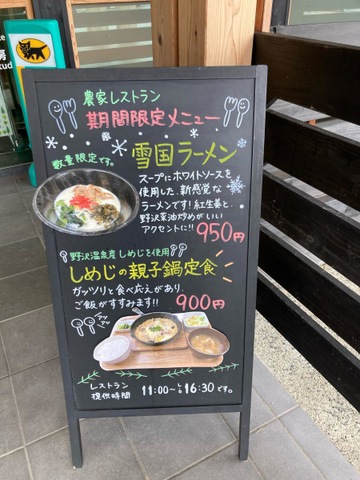 農家レストラン
期間限定メニュー
数量限定です。
雪国ラーメン
スープにホワイトソースを
使用した、新感覚な
ラーメンです!紅生姜と、
野沢菜油炒めがいい
アクセントに!! 950円
野沢温泉産 しめじを使用
しめじの親子鍋定食
ガッツリと食べ応えがあり、
ご飯がすすみます!! 900円
アツ
アツ
レストラン
提供時間 11:00~L.O 16:30です。